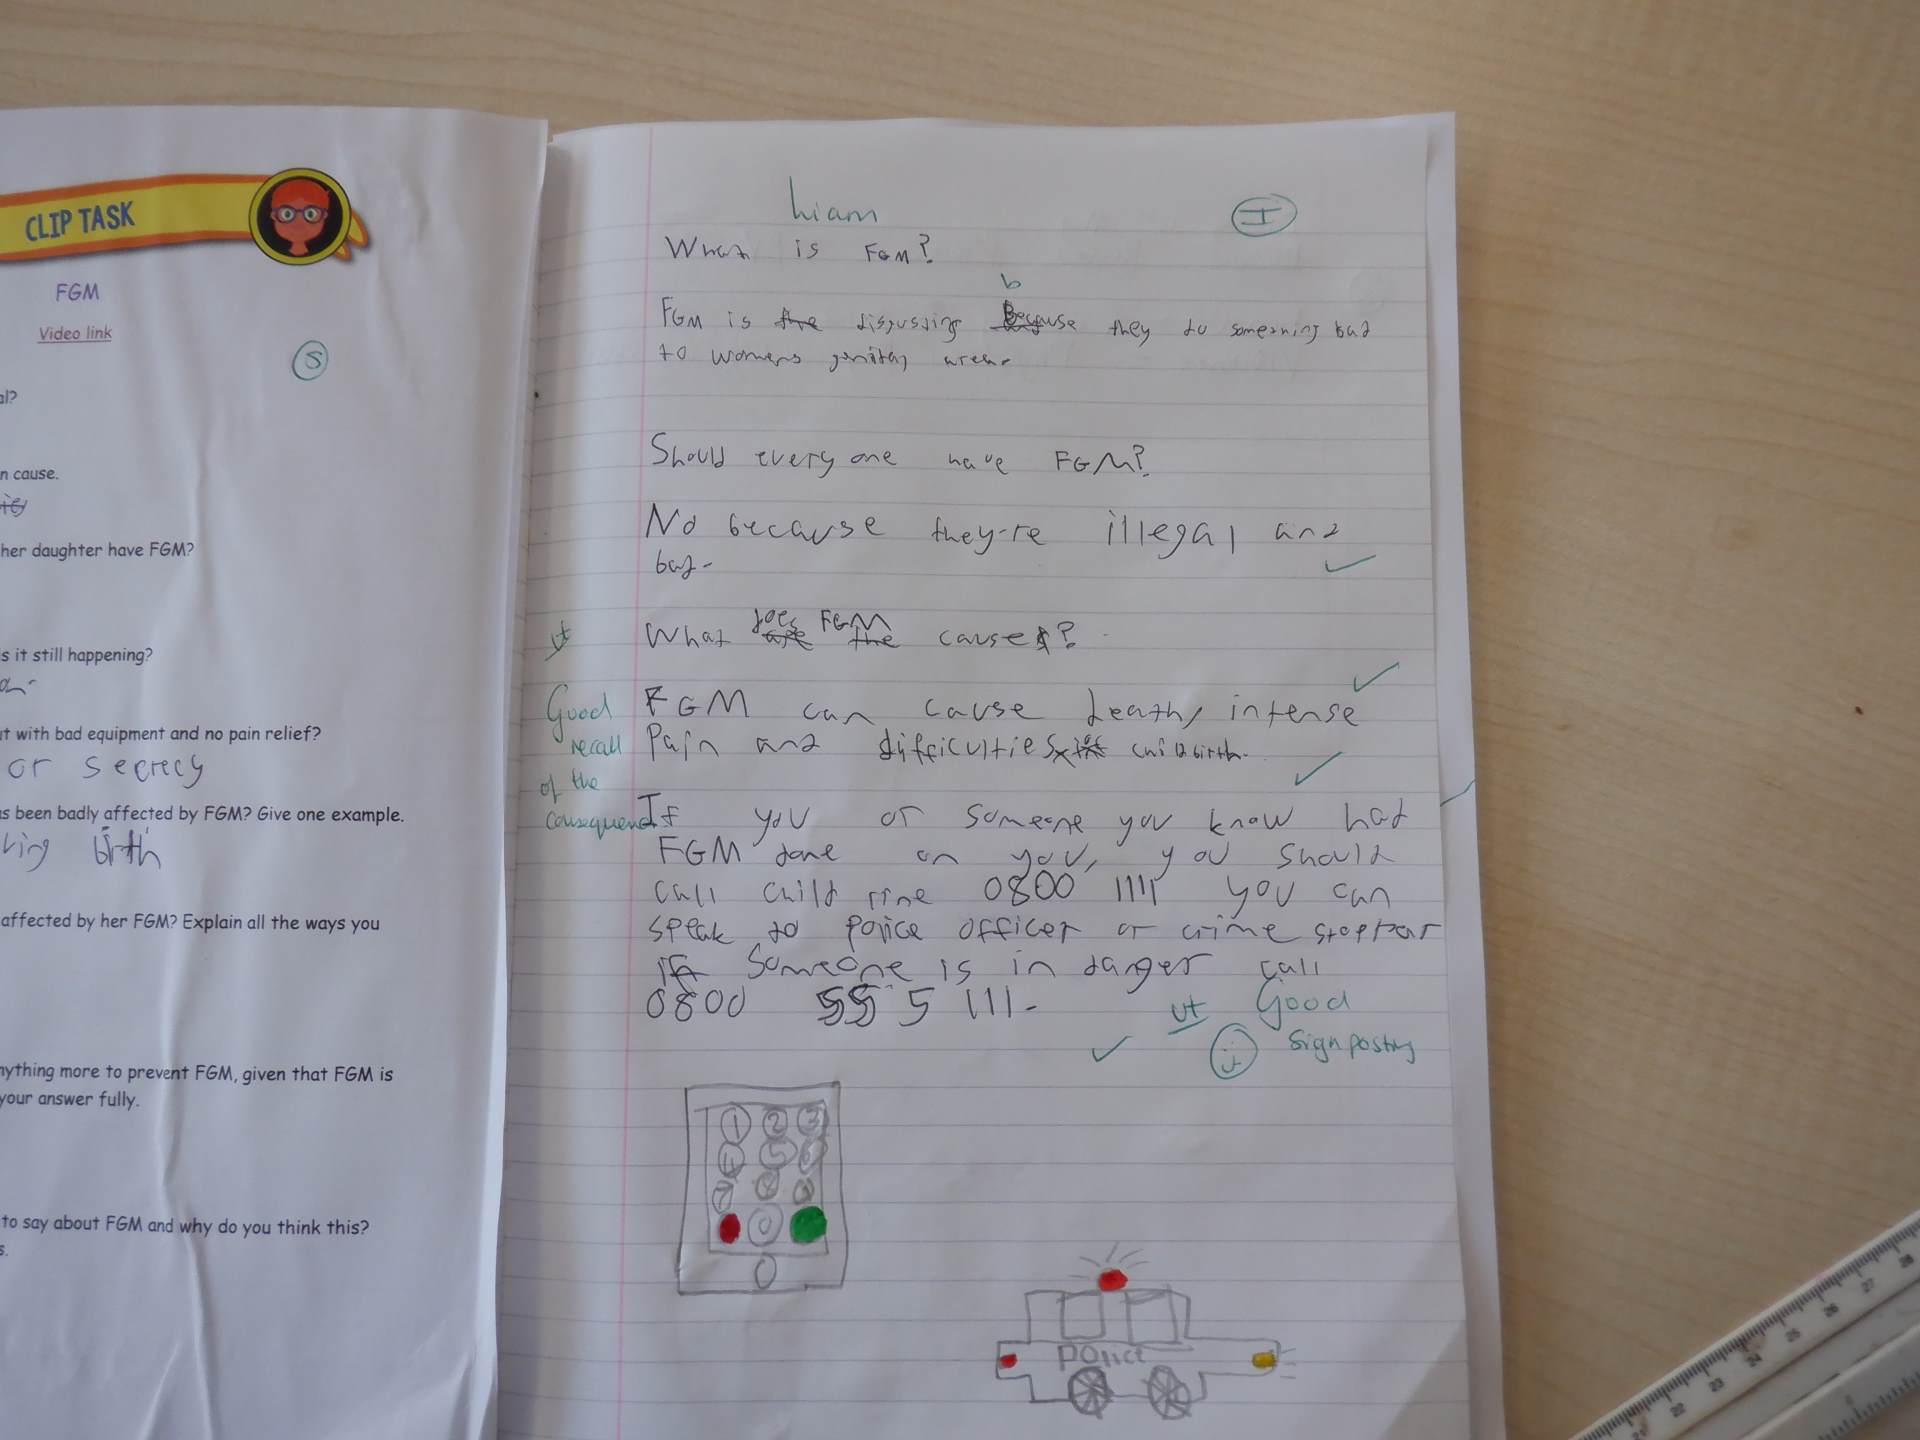 CLIP TASK
FGM
Video link
S
al?
n cause.
her daughter have FGM?
s it still happening?
t with bad equipment and no pain relief?
or secrecy
s been badly affected by FGM? Give one example.
ving birth
affected by her FGM? Explain all the ways you
nything more to prevent FGM, given that FGM is
your answer fully.
to say about FGM and why do you think this?
s.
I
What is FGM?
b
FGM is the disgusting Because they do something bad
to womens area.
Should every one have FGM?
No because they-re illegal and
bad.
does FGM
vt What are the cause?
Good FGM can cause death, intense
recall Pain and difficulties childbirth.
of the
consequences If you or someone you know had
FGM done on you, you should
call child line 0800 1111 you can
speak to police officer or crime stoppar
if someone is in danger call
0800 555 111.
vt Good
signposting
1 2 3
4 5 6
7 8
0
POlice
22 23 24 25 26 27 28